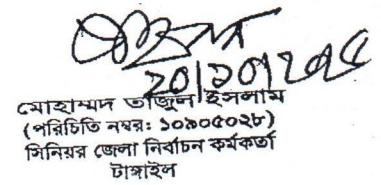 ২০/১০/২০২৫
মোহাম্মদ তাজুল ইসলাম
(পরিচিতি নম্বর: ১০৯০৫০২৮)
সিনিয়র জেলা নির্বাচন কর্মকর্তা
টাঙ্গাইল